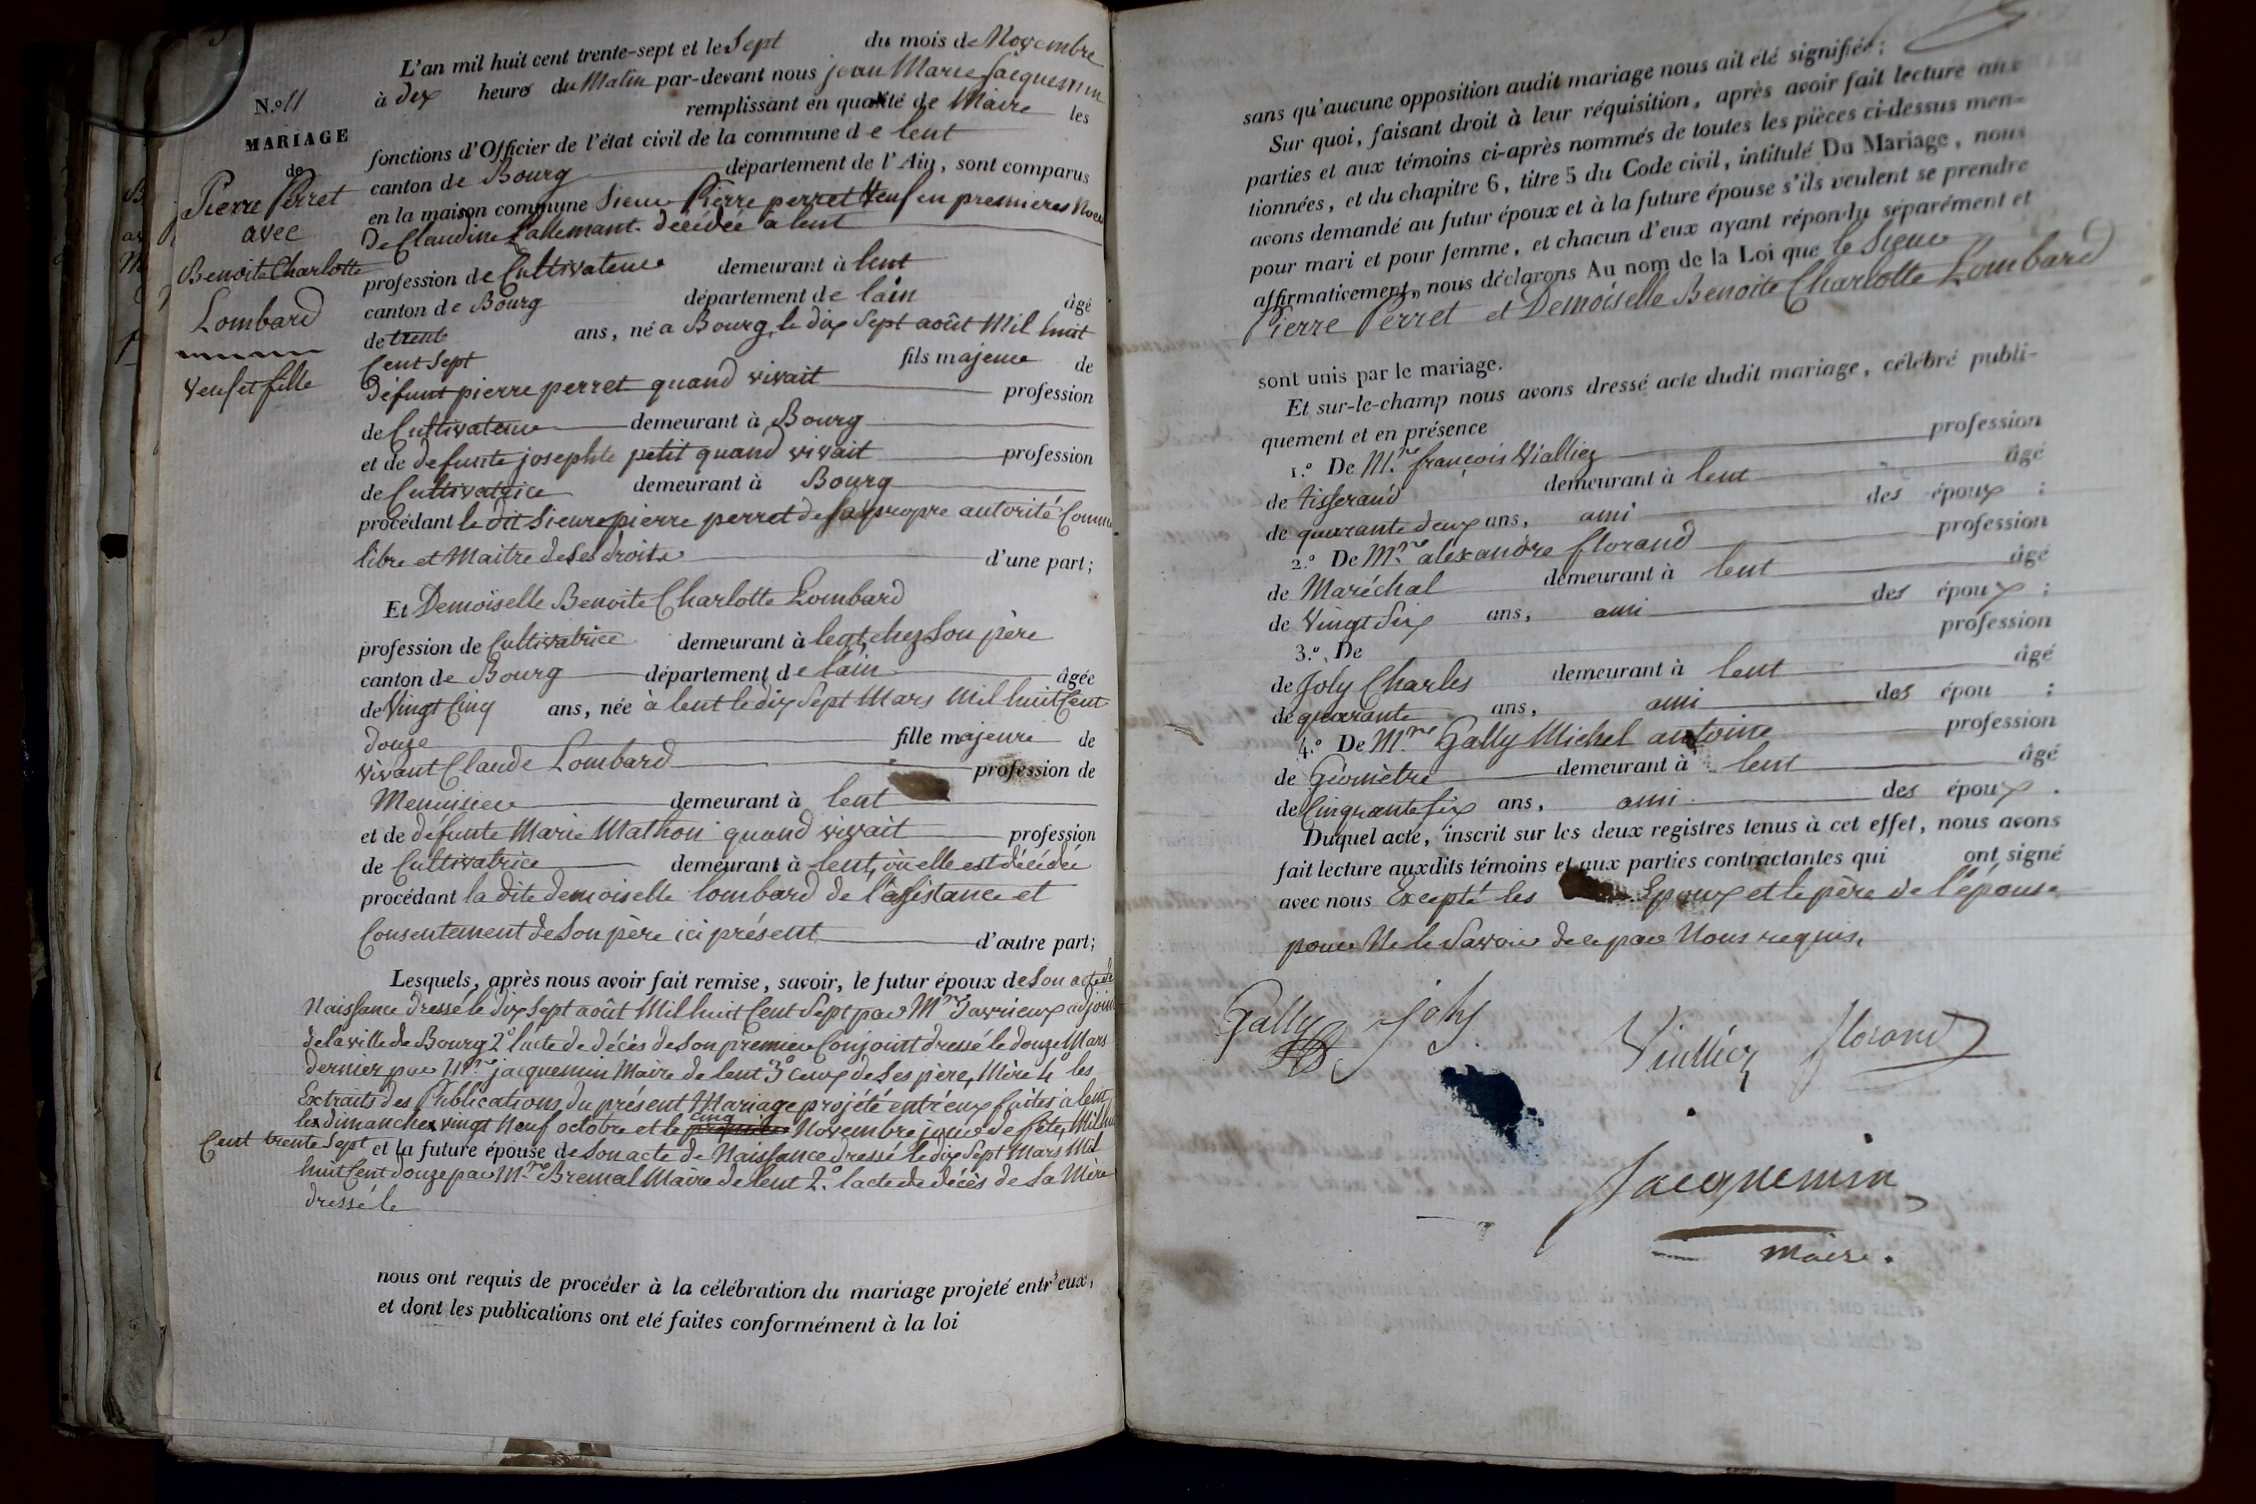 N.º 11
MARIAGE
de
Pierre Perret
avec
Benoite Charlotte
Lombard
Veuf et fille
L'an mil huit cent trente-sept et le Sept du mois de Novembre
à dix heures du Matin par-devant nous jean Marie Jacquemin
remplissant en qualité de Maire les
fonctions d'Officier de l'état civil de la commune de lent
canton de Bourg département de l'Ain, sont comparus
en la maison commune Sieur Pierre perret Veuf en premieres Noces
De Claudine Lallemant décédée à lent
profession de Cultivateur demeurant à lent
canton de Bourg département de lain âgé
de trente ans, né a Bourg le dix Sept août Mil huit
Cent Sept fils majeur de
Défunt pierre perret quand vivait profession
de Cultivateur demeurant à Bourg
et de defunte josephte petit quand vivait profession
de Cultivatrice demeurant à Bourg
procédant le dit Sieur pierre perret de sa propre autorité Comme
libre et Maitre de Ses droits d'une part;
Et Demoiselle Benoite Charlotte Lombard
profession de Cultivatrice demeurant à lent, chez Son père
canton de Bourg département de lain âgée
de Vingt Cinq ans, née à lent le dix Sept Mars Mil huit Cent
douze fille majeure de
vivant Claude Lombard profession de
Menuisier demeurant à lent
et de défunte Marie Mathon quand vivait profession
de Cultivatrice demeurant à lent, où elle est décédée
procédant la dite demoiselle lombard de l'assistance et
Consentement de Son père ici présent d'autre part;
Lesquels, après nous avoir fait remise, savoir, le futur époux de Son acte de
Naissance dressé le dix Sept août Mil huit Cent Sept par Mre adjoint
de la ville de Bourg 2º l'acte de décès de Son premier Conjoint dressé le douze Mars
dernier par Mre jacquemin Maire de lent 3º ceux de Ses père, Mère 4º les
Extraits des Publications du présent Mariage projété entr'eux faites à lent
les dimanches vingt Neuf octobre et le cinq Novembre jour de fête, Mil huit
Cent trente Sept et la future épouse de Son acte de Naissance dressé le dix Sept Mars Mil
huit Cent douze par Mre Bremal Maire de lent 2º l'acte de décès de Sa Mère
dressé le
nous ont requis de procéder à la célébration du mariage projeté entr'eux,
et dont les publications ont eté faites conformément à la loi
sans qu'aucune opposition audit mariage nous ait été signifiée;
Sur quoi, faisant droit à leur réquisition, après avoir fait lecture aux
parties et aux témoins ci-après nommés de toutes les pièces ci-dessus men-
tionnées, et du chapitre 6, titre 5 du Code civil, intitulé Du Mariage, nous
avons demandé au futur époux et à la future épouse s'ils veulent se prendre
pour mari et pour femme, et chacun d'eux ayant répondu séparément et
affirmativement, nous déclarons Au nom de la Loi que le Sieur
Pierre Perret et Demoiselle Benoite Charlotte Lombard
sont unis par le mariage.
Et sur-le-champ nous avons dressé acte dudit mariage, célébré publi-
quement et en présence
1.º De Mre françois Vialliez profession
de tisserand demeurant à lent âgé
de quarante deux ans, ami des époux :
2.º De Mre alexandre florand profession
de Maréchal demeurant à lent âgé
de Vingt Six ans, ami des époux ;
3.º De profession
de Joly Charles demeurant à lent âgé
de quarante ans, ami des épou ;
4.º De Mre Gally Michel antoine profession
de Géomètre demeurant à lent âgé
de Cinquante Six ans, ami des époux .
Duquel acte, inscrit sur les deux registres tenus à cet effet, nous avons
fait lecture auxdits témoins et aux parties contractantes qui ont signé
avec nous Excepté les Epoux et le père de l'épouse
pour Ne le Savoir de ce par Nous requis.
Gally Joly Vialliez florand
Jacquemin
Maire.